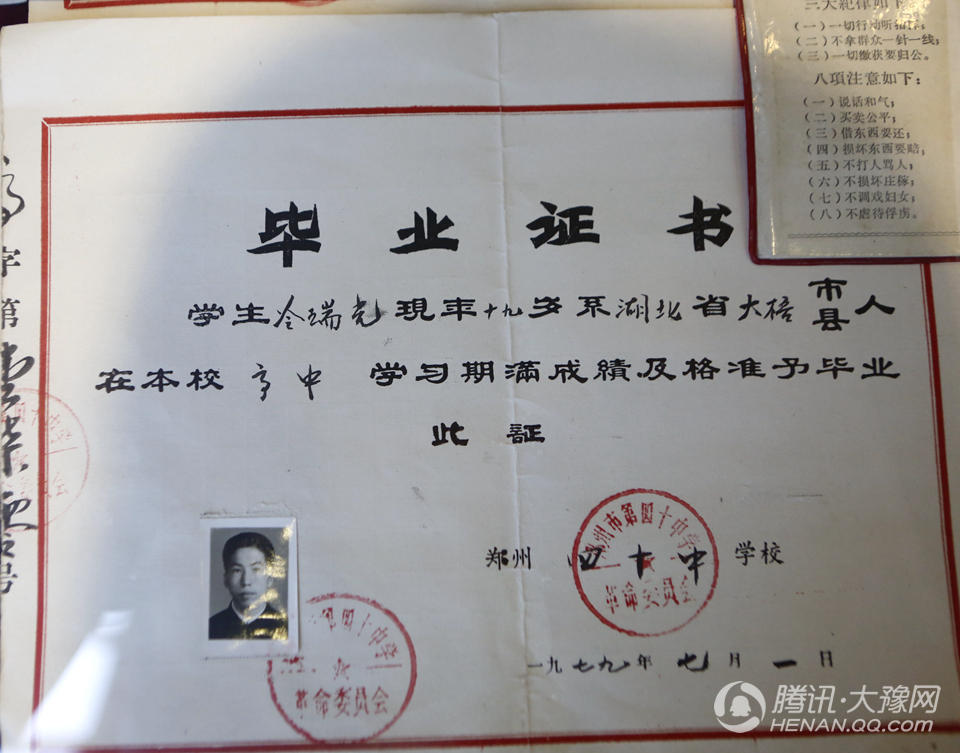 三大纪律如下
（一）一切行动听指挥；
（二）不拿群众一针一线；
（三）一切缴获要归公。
八項注意如下：
（一）说话和气；
（二）买卖公平；
（三）借东西要还；
（四）损坏东西要赔；
（五）不打人骂人；
（六）不损坏庄稼；
（七）不调戏妇女；
（八）不虐待俘虏。
毕业证书
学生 冷瑞光 现年十九岁系湖北省大梧市县人
在本校 高中 学习期满成績及格准予毕业
此証
郑州 四十中 学校
郑州市第四十中学
革命委员会
一九七九年七月一日
第四十中学
革命委员会
字第
号
腾讯·大豫网
HENAN.QQ.COM